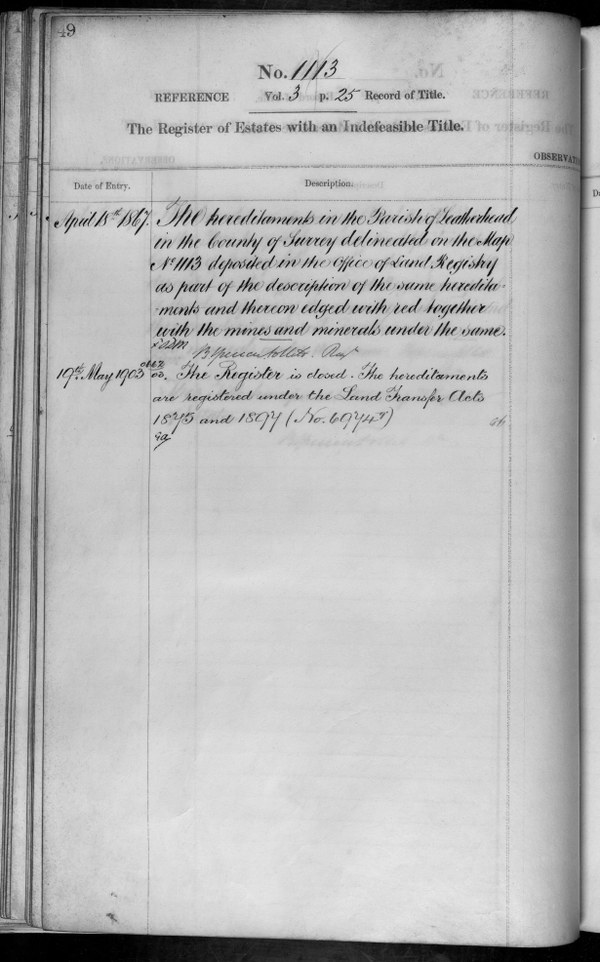 49
No. 1113
REFERENCE Vol. 3 p. 25 Record of Title.
The Register of Estates with an Indefeasible Title.
OBSERVAT
Date of Entry. Description.
April 18th 1867. The hereditaments in the Parish of Leatherhead
in the County of Surrey delineated on the Map
No 1113 deposited in the Office of Land Registry
as part of the description of the same heredita-
-ments and thereon edged with red together
with the mines and minerals under the same.
19th May 1903 The Register is closed. The hereditaments
are registered under the Land Transfer Acts
1875 and 1897 (No. 69747)